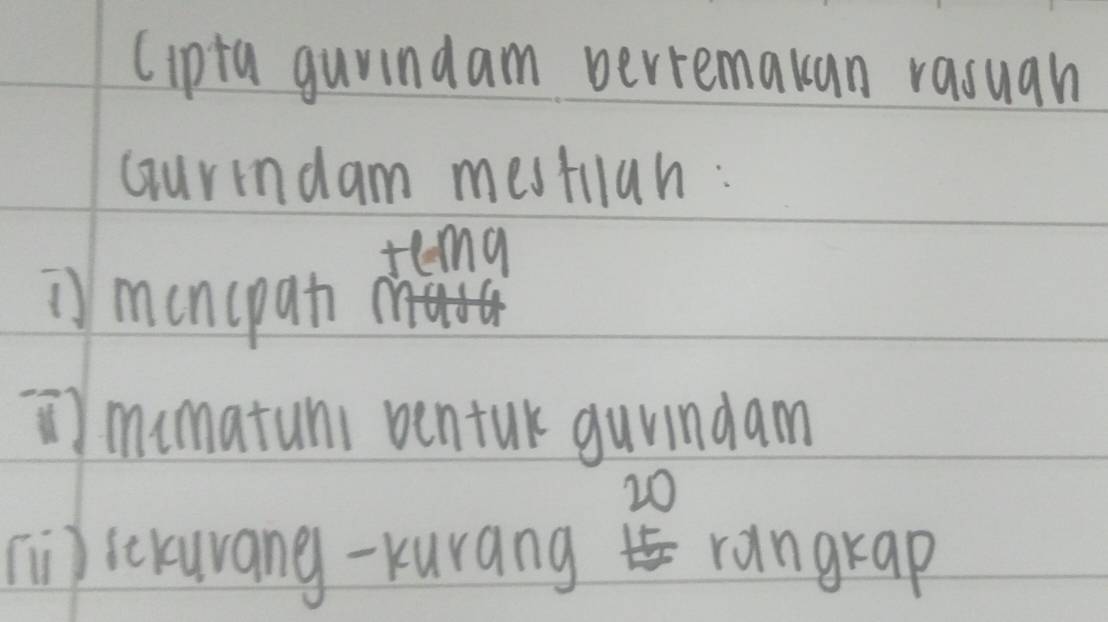 Cipta gurindam bertemakan rasuah
Gurindam mestilah :
tema
i) mencpati masa
ii) mematuhi bentuk gurindam
20
iii) sekurang-kurang 15 rangkap